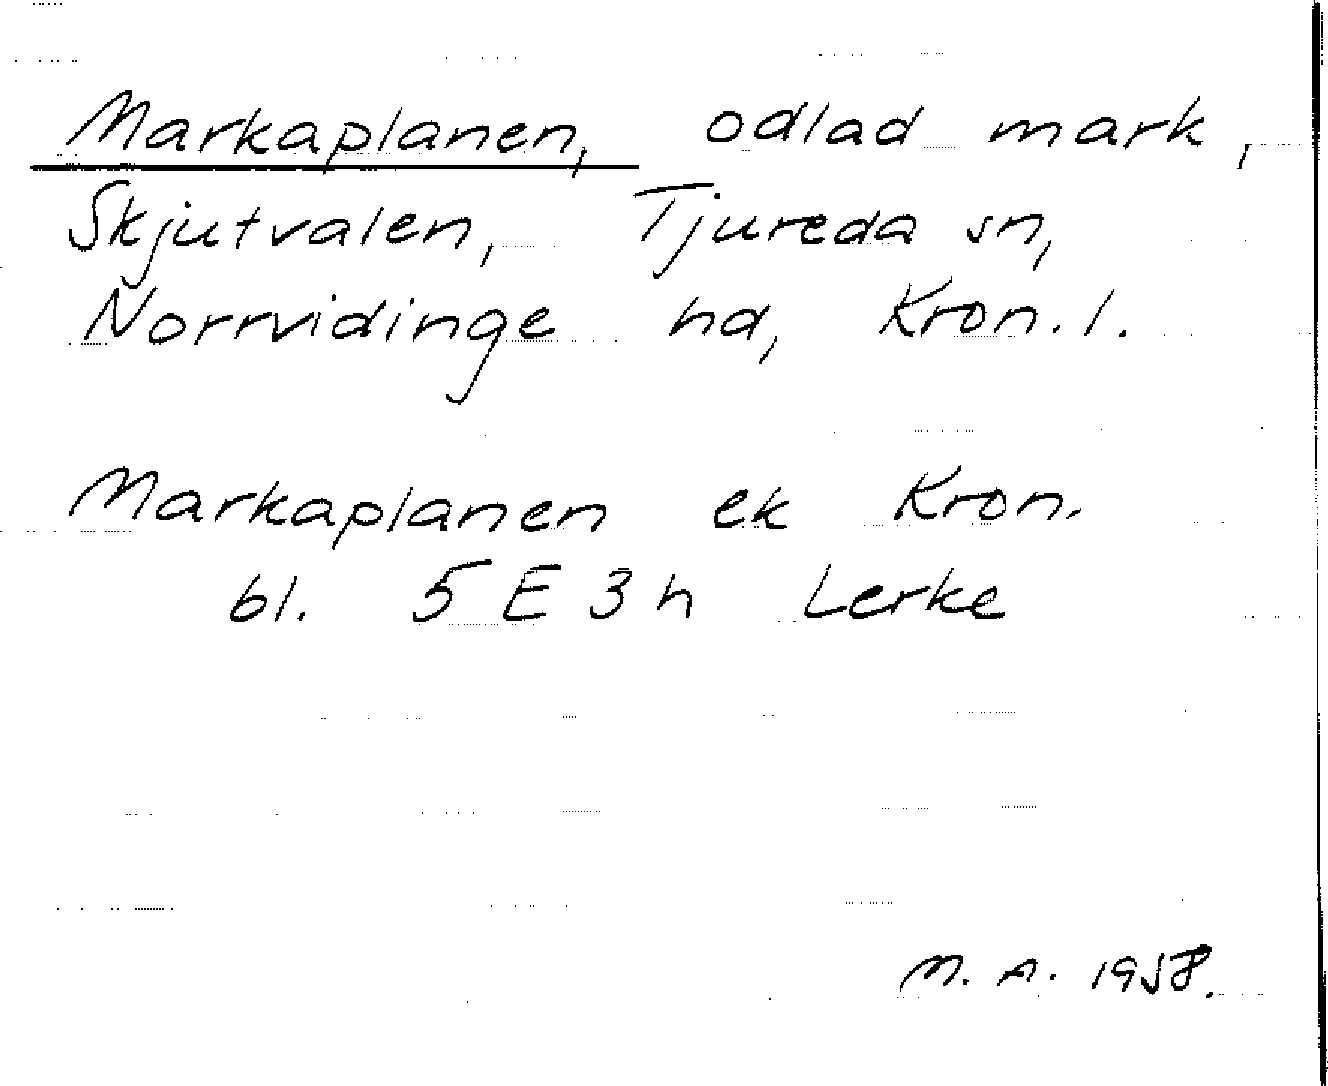 Markaplanen, odlad mark,
Skjutvalen, Tjureda sn,
Norrvidinge hd, Kron. l.
Markaplanen ek Kron.
bl. 5 E 3 h Lerke
M. A. 1958.